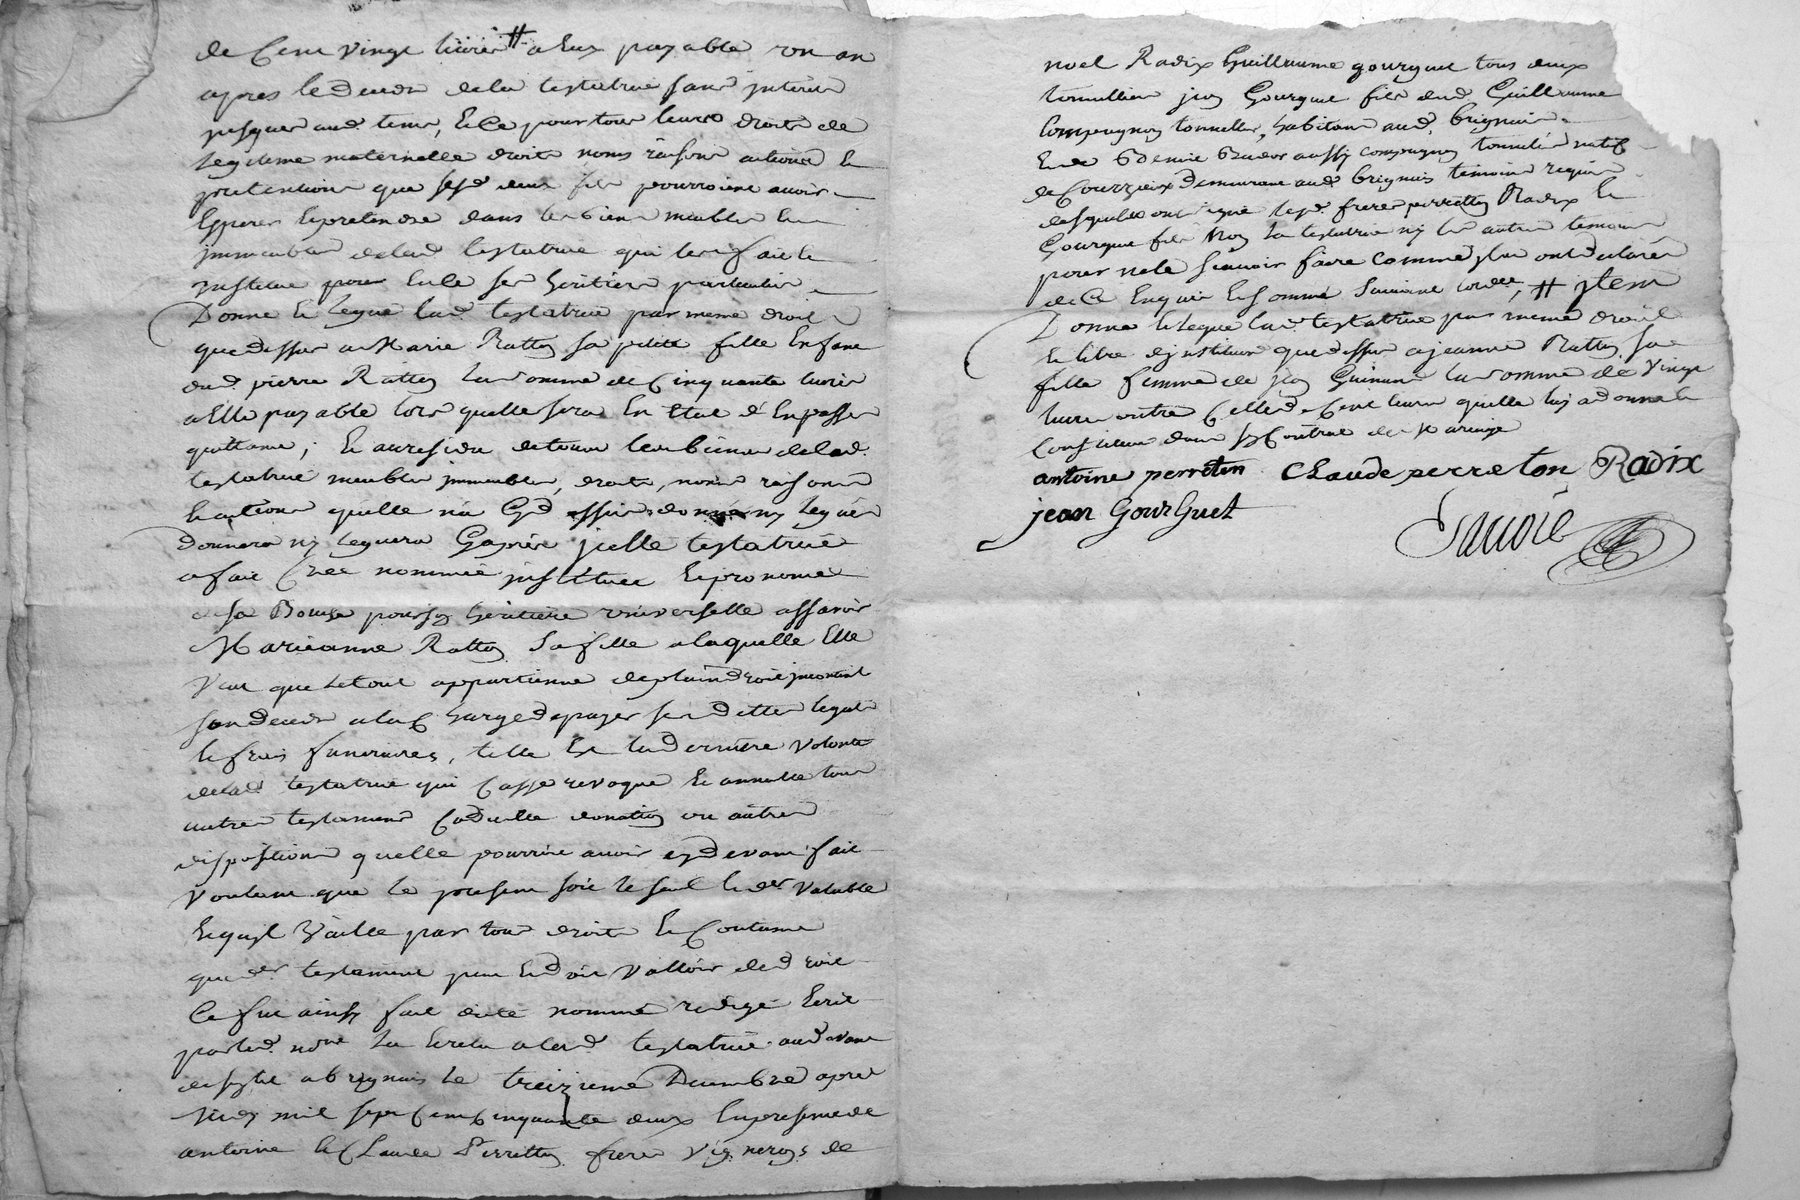 de Cent vingt livres # a eux payable un an
apres le deceds de la testatrice sans interets
jusques aud. tems, Et Ce pour tous leurs droits de
legitime maternelle droits noms raisons actions Et
pretentions que lesd. deux fils pourroient avoir
Esperer Et pretendre dans les biens meubles Et
immeubles de lad. testatrice qui les fait Et
institue pour Eulx ses heritiers particuliers
Donne Et legue lad. testatrice par meme droit
que dessus a Marie Ratton sa petite fille Enfant
dud. pierre Ratton la somme de Cinquante livres
a Elle payable lors quelle sera En Etat d'En passer
quittance ; Et au residu de tous les biens de lad.
testatrice meubles immeubles, droits, noms raisons
Et actions quelle n'a Cy dessus donné ny legués
Donnera ny leguera Cy apres icelle testatrice
a fait Créé nommée instituee Et prononcé
de sa Bouche pour son heritiere universelle assavoir
Marieanne Ratton sa fille a laquelle Elle
Veut que le tout appartienne de plain droit incontinent
son deceds a la Charge de payer ses dettes legats
Et frais funeraires, telle Est la derniere volonté
de lad. testatrice qui Casse revoque Et annulle tous
autres testaments Codicille donation ou autres
dispositions quelle pourroit avoir cy devant fait
Voulant que le present soit le seul Et der. valable
Et quil Vaille par tous droits Et Coutume
que der. testament peut Et doit valloir de droit
Ce fut ainsy fait dicté nommé redigé Ecrit
par led. notre Lu Et relu a lad. testatrice aud. avant
designé a brignais le treizieme Decembre apres
midy mil sept Cent Cinquante deux En presence de
antoine Et Claude Perretton freres vignerons de
noel Radix Guillaume gourguet tous deux
tonnelliers jean Gourguet fils dud. Guillaume
Compagnon tonnellier, habitans aud. brignais
Et de aussy compagnon tonnelier natif
de Courzieux Demeurant aud. brignais temoins requis
desquels ont signé lesd. freres perretton Radix Et
Gourguet fils Non la testatrice ny les autres temoins
pour ne le scavoir faire comme ils ont declarés
de Ce Enquis Et sommé suivant lordce, # item
Donne Et legue lad. testatrice par meme droit
Et titre d'institution que dessus a jeanne Ratton sa
fille femme de jean la somme de vingt
livres outre Celle de Cent livres quelle luy a donné Et
Constitué dans son Contrat de Mariage
antoine perreton Chaude perreton Radix
jean Gourguet